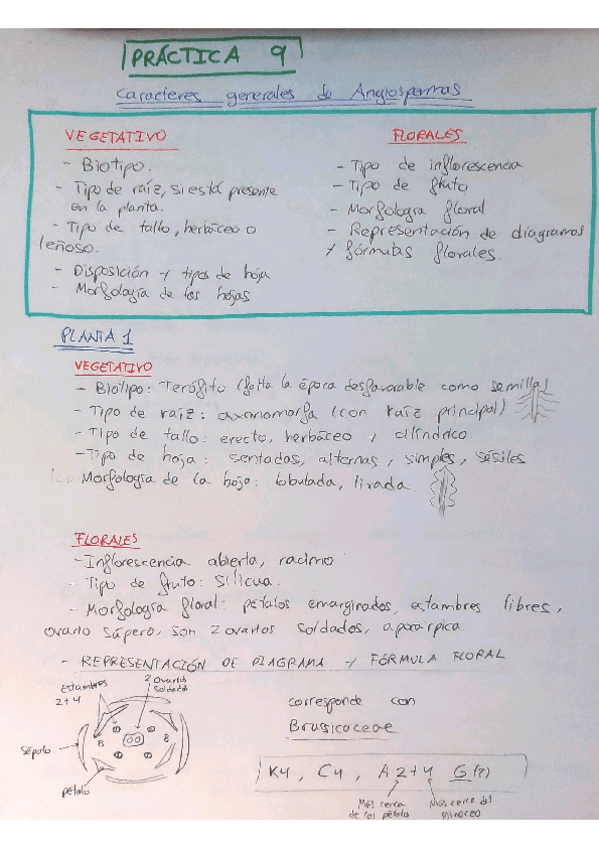 PRÁCTICA 9
Caracteres generales de Angiospermas
VEGETATIVO
- Biotipo.
- Tipo de raíz, si está presente
en la planta.
- Tipo de tallo, herbáceo o
leñoso.
- Disposición y tipos de hoja
- Morfología de las hojas
FLORALES
- Tipo de inflorescencia
- Tipo de fruto
- Morfología floral
- Representación de diagramas
y fórmulas florales.
PLANTA 1
VEGETATIVO
- Biotipo: Terófito (falta la época desfavorable como semilla)
- Tipo de raíz: axonomorfa (con raíz principal)
- Tipo de tallo: erecto, herbáceo y cilíndrico.
- Tipo de hoja: sentadas, alternas, simples, sésiles
Morfología de la hoja: lobulada, lirada.
FLORALES
- Inflorescencia abierta, racimo
- Tipo de fruto: Silicua.
- Morfología floral: pétalos emarginados, estambres libres,
ovario súpero, son 2 ovarios soldados,
- REPRESENTACIÓN DE DIAGRAMA Y FÓRMULA FLORAL
Estambres
2+4
2 Ovarios
Soldados
Sépalo
pétalo
corresponde con
Brassicaceae
K4, C4, A 2+4 G(2)
Más cerca
de los pétalo
Más cerca del
gineceo